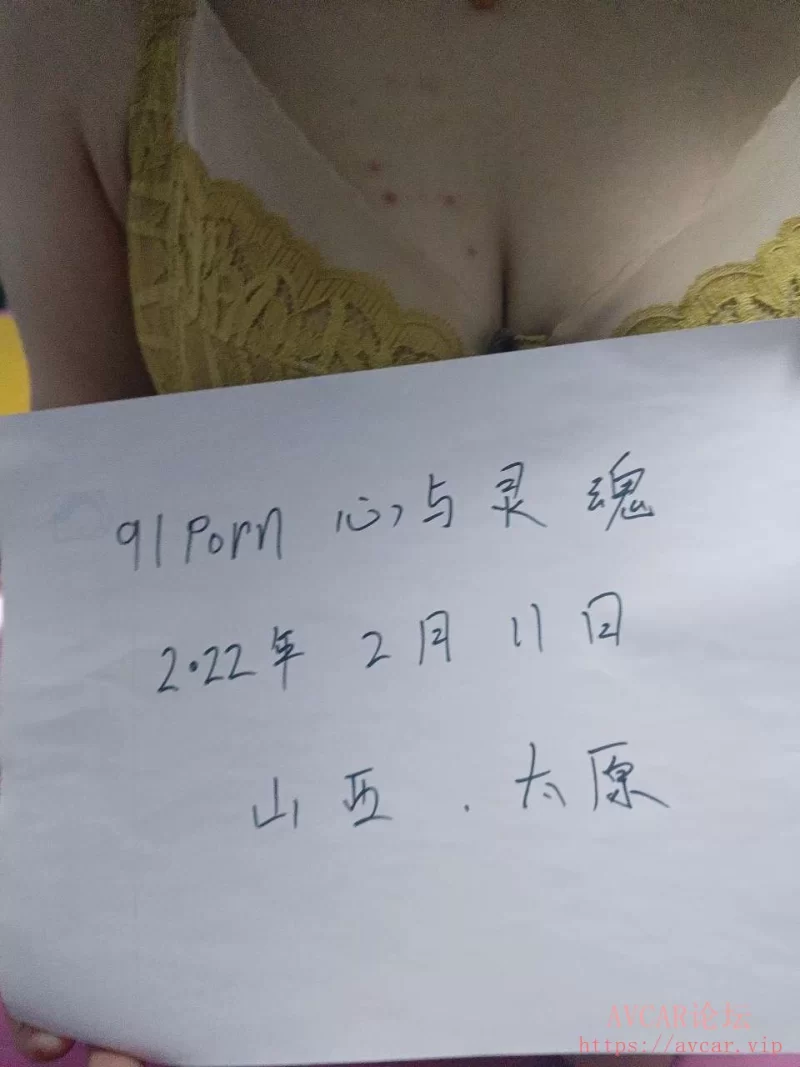 91Porn 心与灵魂
2.22年 2月 11日
山西 . 太原
AVCAR论坛
https://avcar.vip